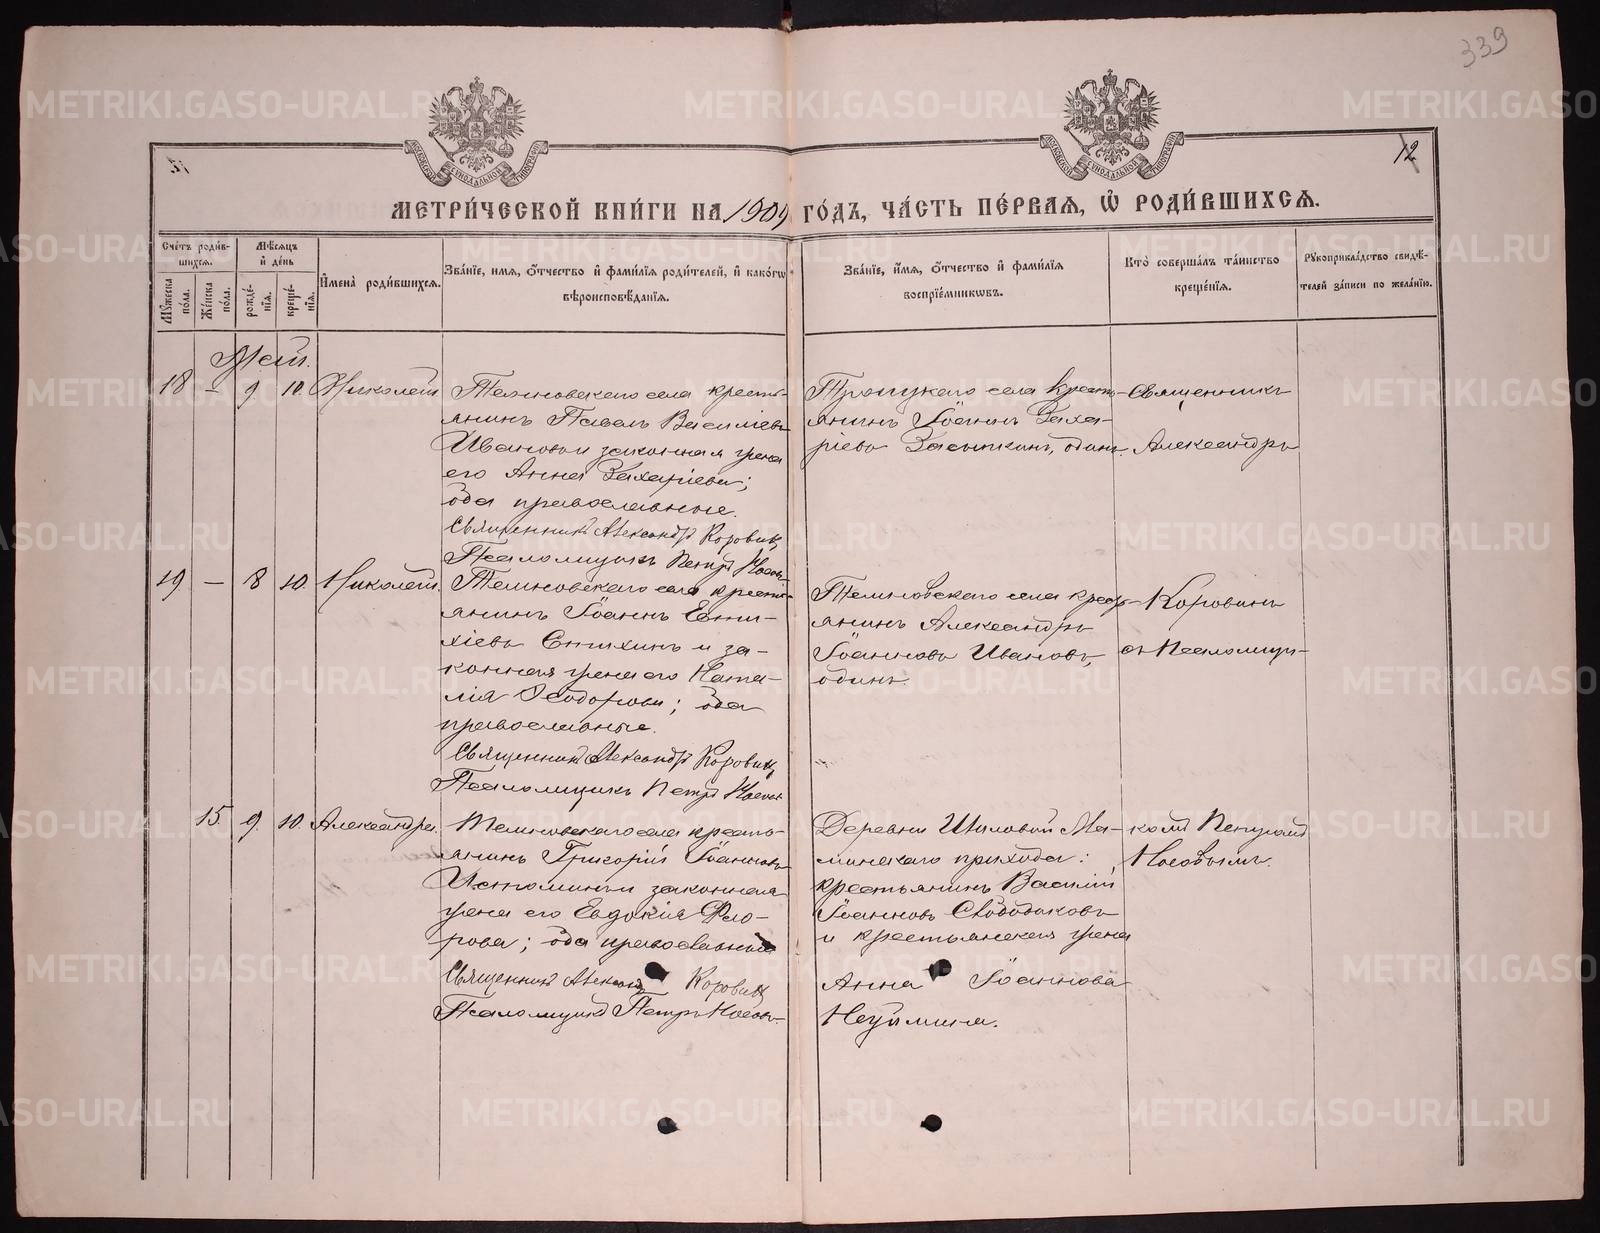 339
12
МЕТРИ́ЧЕСКОЙ КНИ́ГИ НА 1909 ГО́ДЪ, ЧА́СТЬ ПЕ́РВАЯ, Ѡ РОДИ́ВШИХСЯ.
Сче́тъ роди́вшихся.
Му́жеска по́ла.
Же́нска по́ла.
Мѣ́сяцъ и де́нь
рожде́нія.
креще́нія.
Имена̀ роди́вшихся.
Зва́ніе, имя, о́тчество и фами́лія роди́телей, и како́гѡ
вѣроисповѣ́данія.
Зва́ніе, и́мя, о́тчество и фами́лія
воспріе́мникѡвъ.
Кто̀ соверша́лъ та́инство
креще́нія.
Рукоприкла́дство свидѣ́-
телей за́писи по жела́нію.
Май.
18 — 9 10. Николай
крестъ-
янинъ Павелъ Василіевъ
Ивановъ и законная жена
его Анна Захаріева;
оба православные.
Священникъ Александръ Коровинъ
Псаломщикъ Петръ Носовъ
Троицкаго села крестъ-
янинъ Іоаннъ Заха-
ріевъ одинъ.
Священникъ
Александръ
19 — 8 10. Николай.
села крестъ-
янинъ Іоаннъ Евти-
хіевъ и за-
конная жена его Ната-
лія Ѳеодорова; оба
православные.
Священникъ Александръ Коровинъ
Псаломщикъ Петръ Носовъ
села крест-
янинъ Александръ
Іоанновъ Ивановъ,
одинъ.
Коровинъ
съ Псаломщи-
15 9. 10. Александра.
села крестъ-
янинъ Григорій Іоанновъ
Истоминъ и законная
жена его Евдокія Фло-
рова; оба православные
Священникъ Александръ Коровинъ
Псаломщикъ Петръ Носовъ.
Деревни Шиловой Ма-
минскаго прихода:
крестьянинъ Василій
Іоанновъ Свободиковъ
и крестьянская жена
Анна Іоаннова
Неуймина.
комъ Петромъ
Носовымъ.
METRIKI.GASO-URAL.RU